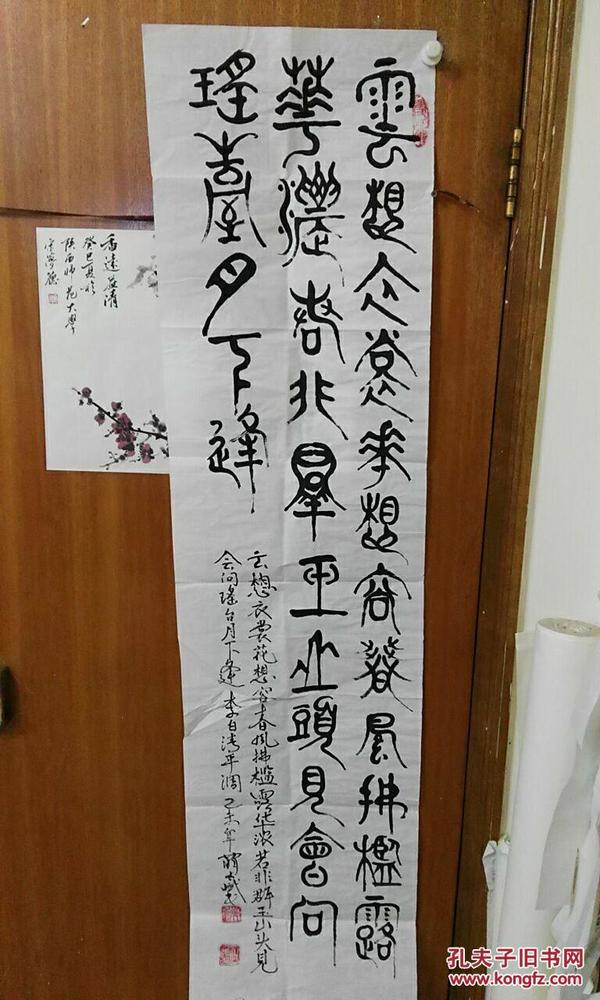 雲想衣裳花想容春風拂檻露
華濃若非羣玉山頭見會向
瑤臺月下逢
云想衣裳花想容春风拂槛露华浓若非群玉山头见
会向瑶台月下逢 李白清平调 乙未年
香远益清
癸巳夏于
陕西师范大學
孔夫子旧书网
www.kongfz.com